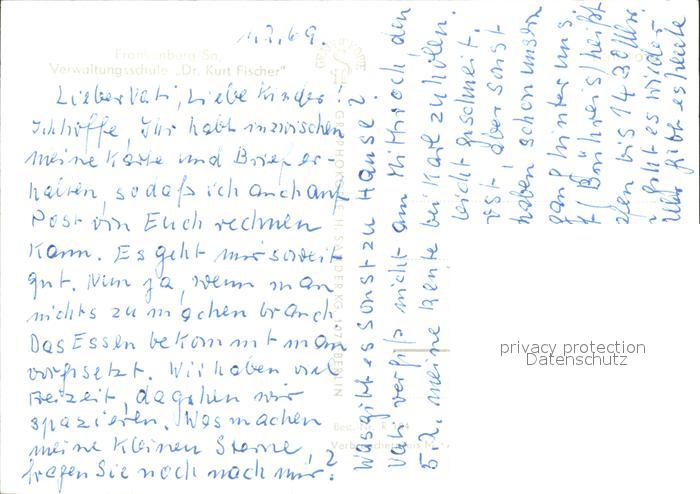 1.2.69.
Frankenberg Sn,
Verwaltungsschule „Dr. Kurt Fischer"
Lieber Vati, Liebe Kinder!
Ich hoffe, Ihr habt inzwischen
meine Karte und Brief er-
halten, sodaß ich auch auf
Post von Euch rechnen
kann. Es geht mir soweit
gut. Nun ja, wenn man
nichts zu machen brauch
Das Essen bekommt man
vorgesetzt. Wir haben viel
Freizeit, da gehen wir
spazieren. Was machen
meine kleinen Sterne,
fragen Sie noch nach mir?
Was gibt es sonst zu Hause?
Vati vergiß nicht am Mittwoch den
5.2. meine Rente bei Karl zu holen.
leicht geschneit.
ist, aber sonst
haben schon unsern
gang hinter uns.
bis 14 30 Uhr
gibt es wieder
Uhr gibt es heute
GRAPHOKOPIE H. SANDER KG, 1071 BERLIN
Best. Nr. R
privacy protection
Datenschutz